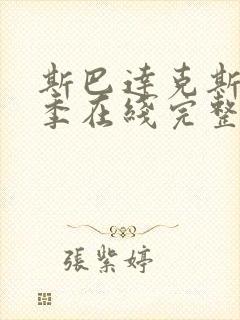 斯巴達克斯
季在綫完整
張紫婷